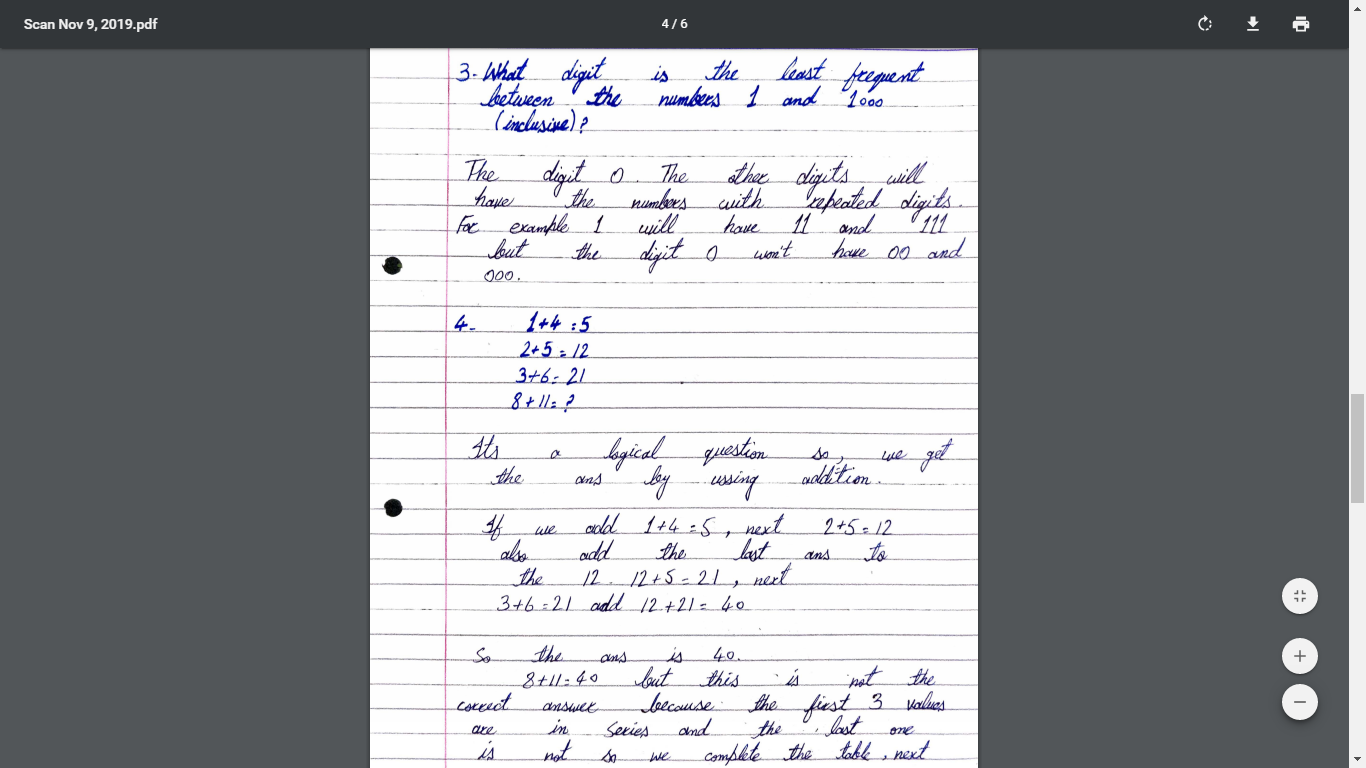 Scan Nov 9, 2019.pdf
4 / 6
3- What digit is the least frequent
between the numbers 1 and 1000
(inclusive)?
The digit 0. The other digits will
have the numbers with repeated digits.
For example 1 will have 11 and 111
but the digit 0 won't have 00 and
000.
4- 1+4 =5
2+5 = 12
3+6= 21
8+11= ?
Its a logical question so, we get
the ans by ussing addition.
If we add 1+4 =5, next 2+5=12
also add the last ans to
the 12. 12+5=21, next
3+6=21 add 12+21= 40
So the ans is 40.
8+11=40 but this is not the
correct answer because the first 3 values
are in series and the last one
is not so we complete the table, next